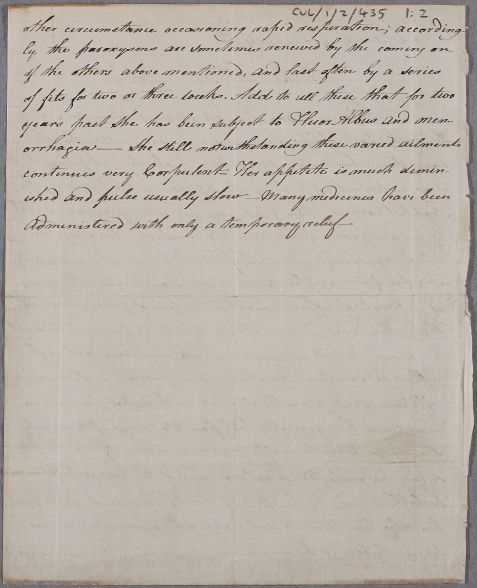 CUL/1/2/435 1:2
other circumstance occasioning rapid respiration; according-
ly, the paroxysms are sometimes renewed by the coming on
of the others above mentioned, and last often by a series
of fits for two or three weeks. Add to all these that for two
years past she has been subject to Fluor Albus and men-
orrhagia — She still notwithstanding these varied ailments
continues very Corpulent Her appetite is much dimin-
ished and pulse usually slow — Many medicines have been
administered with only a temporary relief —